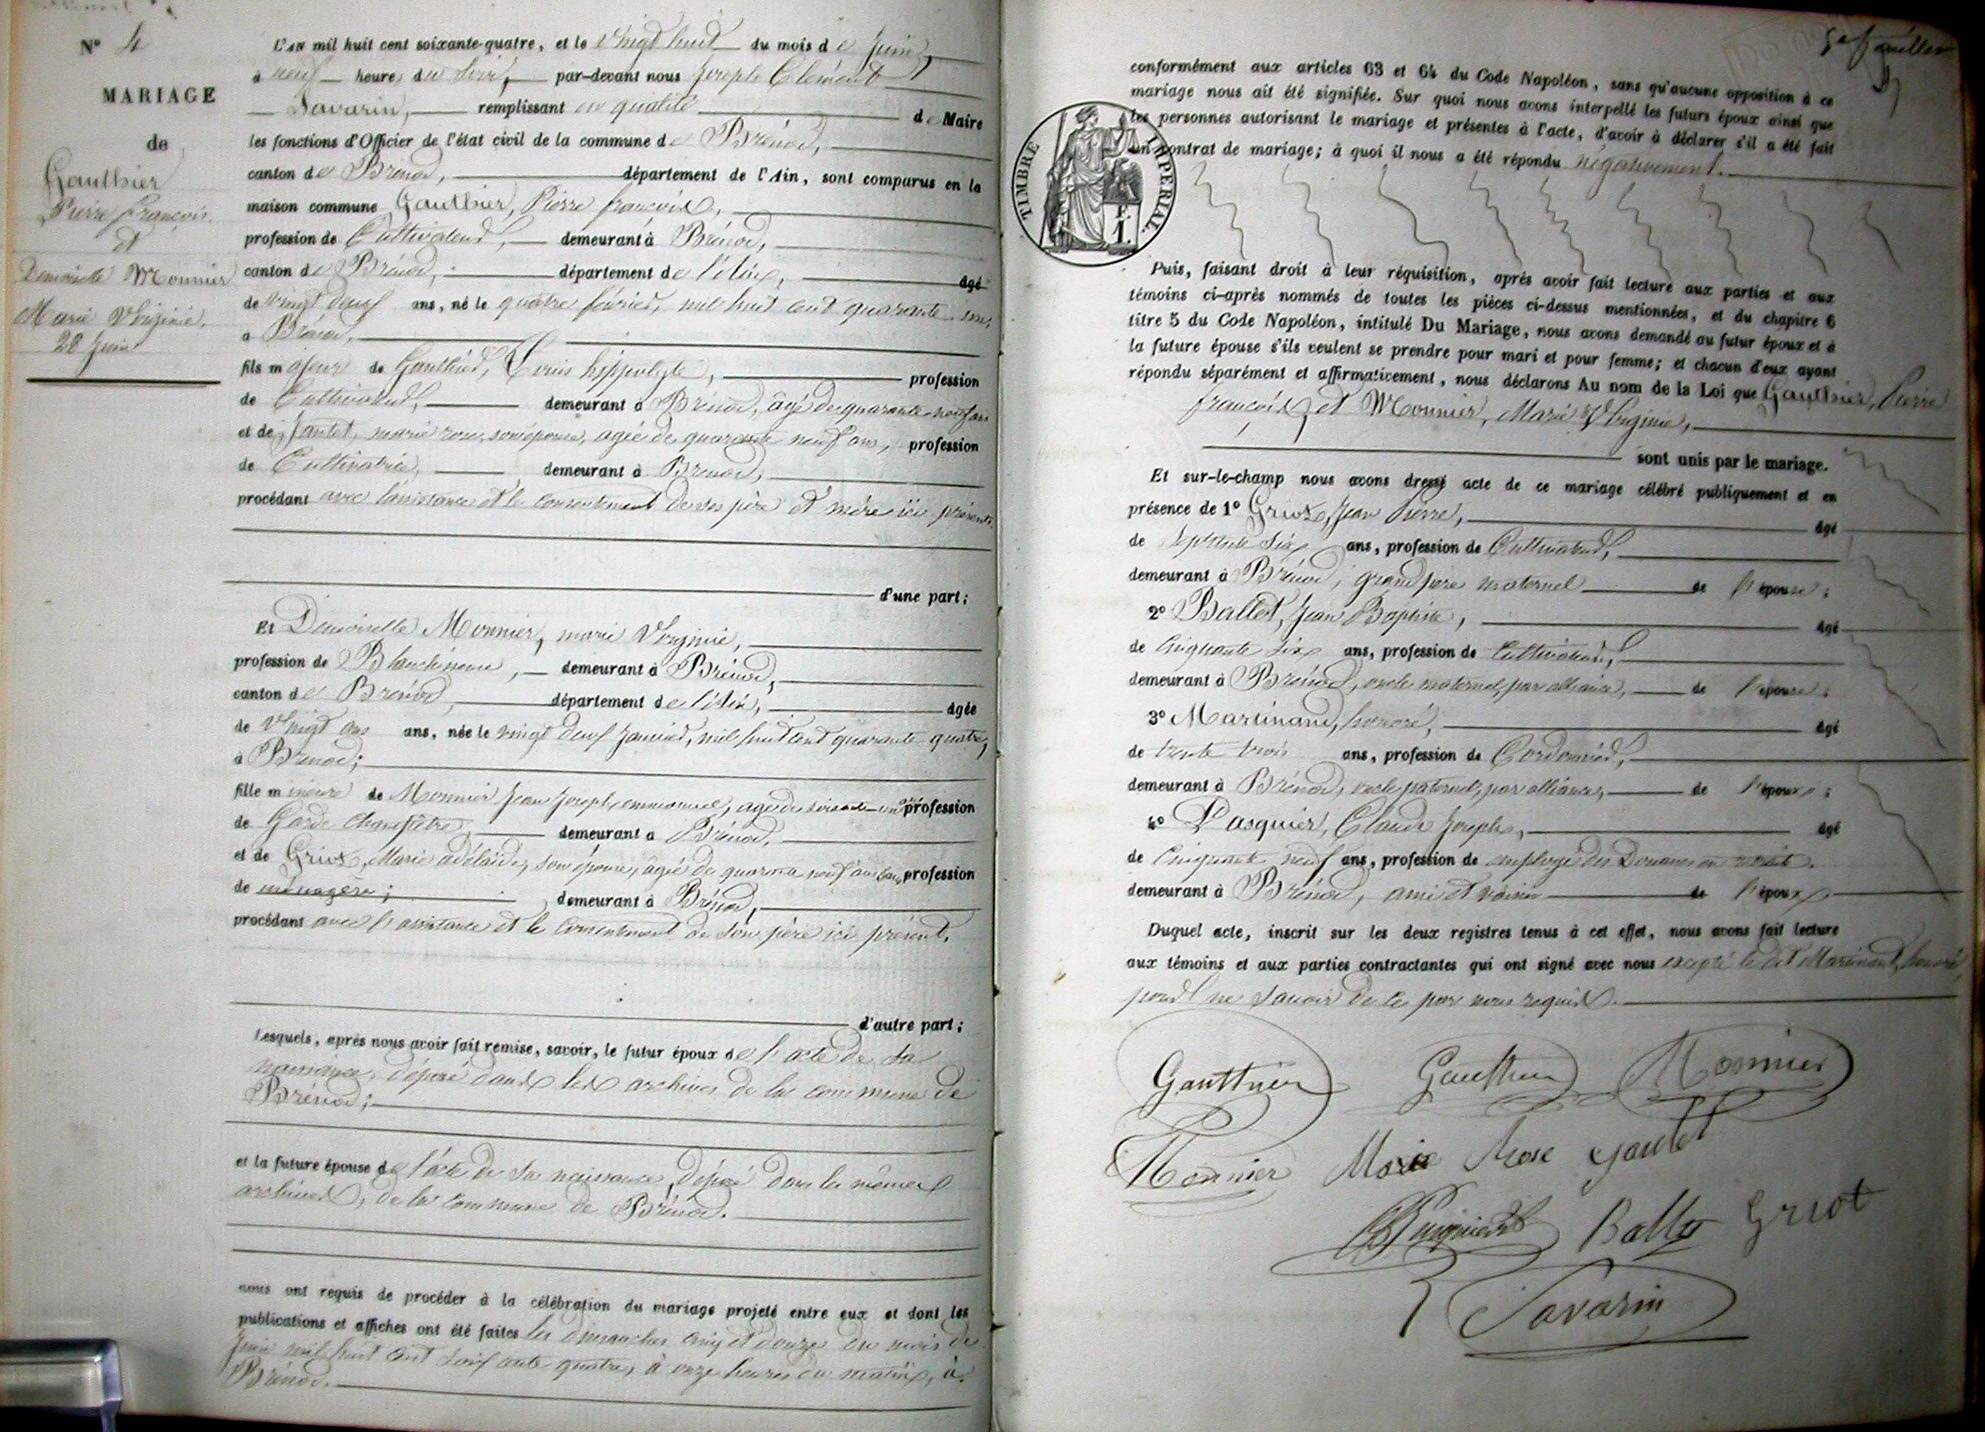 N° 4
MARIAGE
de
Gauthier
Pierre françois.
et
Demoiselle Monnier
Marie Virginie.
28 Juin
L'AN mil huit cent soixante-quatre, et le Vingt huit du mois de Juin,
à neuf heures du Soir, par-devant nous Joseph Clément
Savarin, remplissant en qualité de Maire
les fonctions d'Officier de l'état civil de la commune de Brénod,
canton de Brénod, département de l'Ain, sont comparus en la
maison commune Gauthier, Pierre françois,
profession de Cultivateur, demeurant à Brénod,
canton de Brénod, département de l'Ain, âgé
de vingt deux ans, né le quatre février, mil huit cent quarante
à Brénod,
fils majeur de Gauthier, Louis hippolyte, profession
de Cultivateur, demeurant à Brénod, âgé de quarante neuf ans
et de Jantet, marie rose, son épouse, agée de quarante neuf ans, profession
de Cultivatrice, demeurant à Brénod,
procédant avec l'assistance et le consentement de ses père et mère ici présents.
d'une part;
Et Demoiselle Monnier, marie Virginie,
profession de Blanchisseuse, demeurant à Brénod,
canton de Brénod, département de l'Ain, âgée
de Vingt ans ans, née le vingt deux Janvier, mil huit cent quarante quatre,
à Brénod;
fille mineure de Monnier Jean Joseph emmanuel, agé de soixante un ans profession
de Garde Champêtre, demeurant à Brénod,
et de Griot, Marie adélaïde, son épouse, agée de quarante neuf ans, profession
de ménagère; demeurant à Brénod,
procédant avec l'assistance et le consentement de son père ici présent.
d'autre part;
Lesquels, après nous avoir fait remise, savoir, le futur époux de l'acte de sa
naissance, déposé dans les archives de la commune de
Brénod;
et la future épouse de l'acte de sa naissance, déposé dans les mêmes
archives, de la commune de Brénod.
nous ont requis de procéder à la célébration du mariage projeté entre eux et dont les
publications et affiches ont été faites les dimanches cinq et douze du mois de
Juin mil huit cent soixante quatre, à onze heures du matin, à
Brénod.
5e feuillet
conformément aux articles 63 et 64 du Code Napoléon, sans qu'aucune opposition à ce
mariage nous ait été signifiée. Sur quoi nous avons interpellé les futurs époux ainsi que
les personnes autorisant le mariage et présentes à l'acte, d'avoir à déclarer s'il a été fait
un contrat de mariage; à quoi il nous a été répondu négativement.
TIMBRE IMPERIAL
F.
1.
Puis, faisant droit à leur réquisition, après avoir fait lecture aux parties et aux
témoins ci-après nommés de toutes les pièces ci-dessus mentionnées, et du chapitre 6
titre 5 du Code Napoléon, intitulé Du Mariage, nous avons demandé au futur époux et à
la future épouse s'ils veulent se prendre pour mari et pour femme; et chacun d'eux ayant
répondu séparément et affirmativement, nous déclarons Au nom de la Loi que Gauthier, Pierre
françois, et Monnier, Marie Virginie,
sont unis par le mariage.
Et sur-le-champ nous avons dressé acte de ce mariage célébré publiquement et en
présence de 1° Griot, Jean Pierre, âgé
de septante six ans, profession de Cultivateur,
demeurant à Brénod, grand père maternel de l'épouse;
2° Ballet, Jean Baptiste, âgé
de Cinquante six ans, profession de Cultivateur,
demeurant à Brénod, oncle maternel, par alliance, de l'épouse;
3° Martinand, honoré, âgé
de trente trois ans, profession de Cordonnier,
demeurant à Brénod, oncle paternel, par alliance, de l'époux;
4° Pasquier, Claude Joseph, âgé
de Cinquante neuf ans, profession de employé des Douanes en retraite.
demeurant à Brénod, ami et voisin de l'époux
Duquel acte, inscrit sur les deux registres tenus à cet effet, nous avons fait lecture
aux témoins et aux parties contractantes qui ont signé avec nous excepté le dit Martinand, honoré
pour ne savoir de ce par nous requis.
Gauthier Gauthier Monnier
Monnier Marie Rose Jantet
Ballet Griot
Savarin